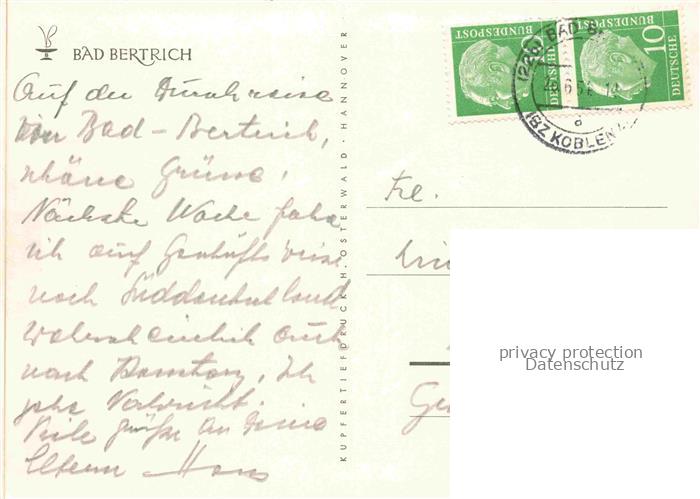 BAD BERTRICH
Auf der Durchreise
von Bad-Bertrich,
schöne Grüsse,
Nächste Woche fahre
ich auf Geschäftsreise
nach Süddeutschland
wahrscheinlich auch
nach Konstanz. Ich
gebe Nachricht.
Viele Grüße an Deine
Eltern Hans
KUPFERTIEFDRUCK H. OSTERWALD · HANNOVER
DEUTSCHE BUNDESPOST 10
DEUTSCHE BUNDESPOST 10
BAD B
(BZ KOBLENZ)
a
Frl.
privacy protection
Datenschutz